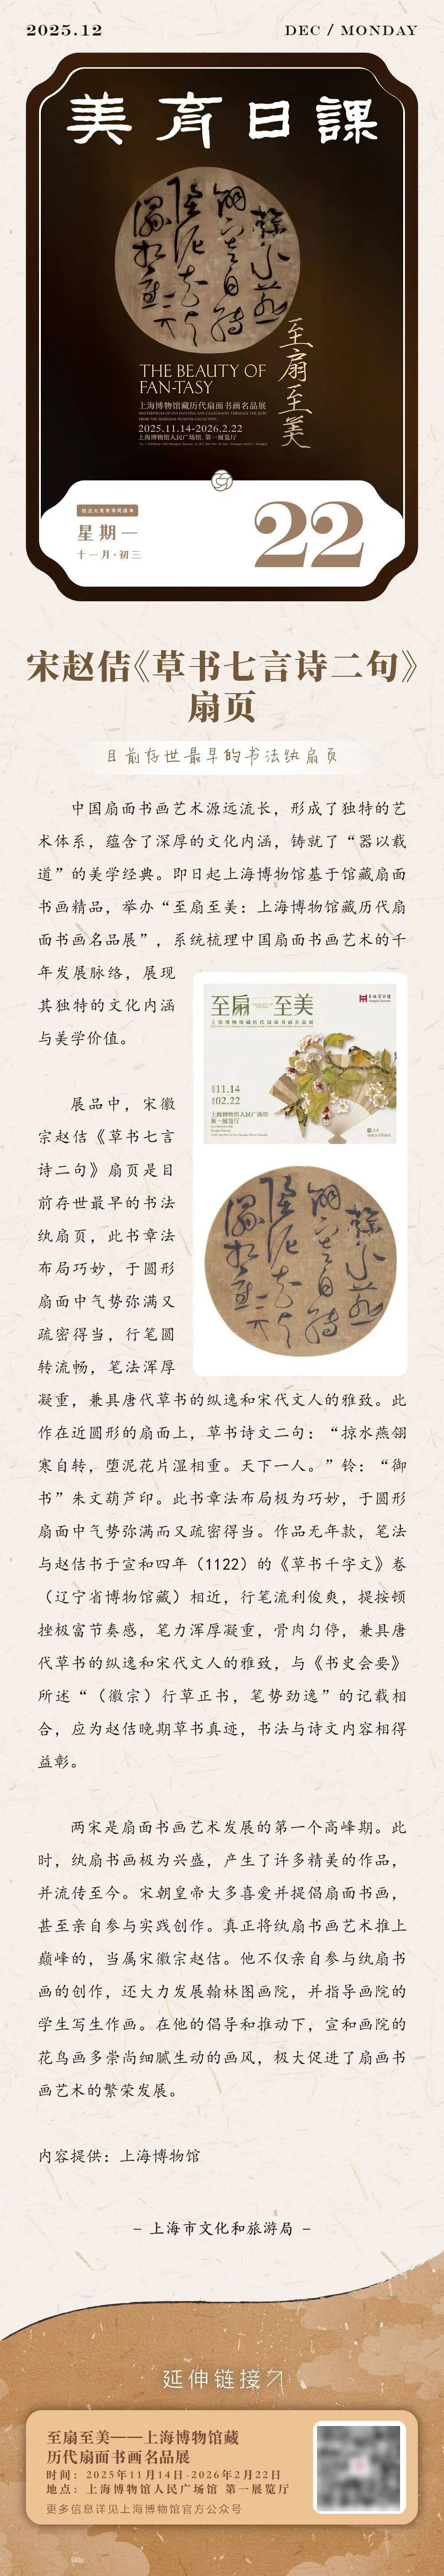 2025.12
DEC / MONDAY
美育日課
掠水燕
翎寒自轉
墮泥花片
濕相重
至扇至美
THE BEAUTY OF
FAN-TASY
上海博物馆藏历代扇面书画名品展
2025.11.14-2026.2.22
上海博物馆人民广场馆 第一展览厅
星期一
十一月·初三
22
宋赵佶《草书七言诗二句》
扇页
目前存世最早的书法纨扇页
中国扇面书画艺术源远流长，形成了独特的艺
术体系，蕴含了深厚的文化内涵，铸就了“器以载
道”的美学经典。即日起上海博物馆基于馆藏扇面
书画精品，举办“至扇至美：上海博物馆藏历代扇
面书画名品展”，系统梳理中国扇面书画艺术的千
年发展脉络，展现
其独特的文化内涵
与美学价值。
至扇 至美
上海博物馆藏历代扇面书画名品展
11.14
02.22
上海博物馆人民广场馆
第一展览厅
展品中，宋徽
宗赵佶《草书七言
诗二句》扇页是目
前存世最早的书法
纨扇页，此书章法
布局巧妙，于圆形
扇面中气势弥满又
疏密得当，行笔圆
转流畅，笔法浑厚
凝重，兼具唐代草书的纵逸和宋代文人的雅致。此
作在近圆形的扇面上，草书诗文二句：“掠水燕翎
寒自转，堕泥花片湿相重。天下一人。”钤：“御
书”朱文葫芦印。此书章法布局极为巧妙，于圆形
扇面中气势弥满而又疏密得当。作品无年款，笔法
与赵佶书于宣和四年（1122）的《草书千字文》卷
（辽宁省博物馆藏）相近，行笔流利俊爽，提按顿
挫极富节奏感，笔力浑厚凝重，骨肉匀停，兼具唐
代草书的纵逸和宋代文人的雅致，与《书史会要》
所述“（徽宗）行草正书，笔势劲逸”的记载相
合，应为赵佶晚期草书真迹，书法与诗文内容相得
益彰。
两宋是扇面书画艺术发展的第一个高峰期。此
时，纨扇书画极为兴盛，产生了许多精美的作品，
并流传至今。宋朝皇帝大多喜爱并提倡扇面书画，
甚至亲自参与实践创作。真正将纨扇书画艺术推上
巅峰的，当属宋徽宗赵佶。他不仅亲自参与纨扇书
画的创作，还大力发展翰林图画院，并指导画院的
学生写生作画。在他的倡导和推动下，宣和画院的
花鸟画多崇尚细腻生动的画风，极大促进了扇画书
画艺术的繁荣发展。
内容提供：上海博物馆
– 上海市文化和旅游局 –
延伸链接
至扇至美——上海博物馆藏
历代扇面书画名品展
时间：2025年11月14日-2026年2月22日
地点：上海博物馆人民广场馆 第一展览厅
更多信息详见上海博物馆官方公众号